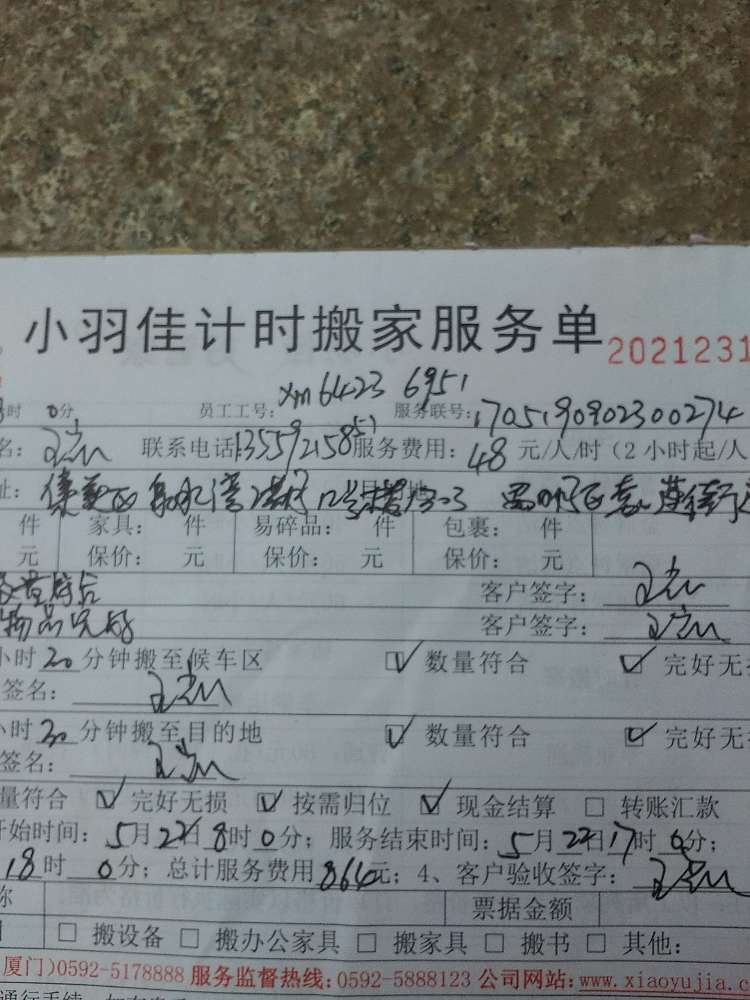 小羽佳计时搬家服务单 2021231
时 0分 员工工号: xm6423 6951 服务联号: 1705190902300274
名: 联系电话 1355921585 51 服务费用: 48 元/人/时 (2小时起/人
址:
件 家具: 件 易碎品: 件 包裹: 件
元 保价: 元 保价: 元 保价: 元
客户签字:
物品完好 客户签字:
小时 30 分钟搬至候车区 ☑ 数量符合 ☑ 完好无
签名:
小时 30 分钟搬至目的地 ☑ 数量符合 ☑ 完好无
签名:
量符合 ☑ 完好无损 ☑ 按需归位 ☑ 现金结算 □ 转账汇款
开始时间: 5月22日8时0分; 服务结束时间: 5月22日17时0分;
18时 0分; 总计服务费用 864元; 4、客户验收签字:
称 票据金额
□ 搬设备 □ 搬办公家具 □ 搬家具 □ 搬书 □ 其他:
厦门)0592-5178888 服务监督热线: 0592-5888123 公司网站: www.xiaoyujia.